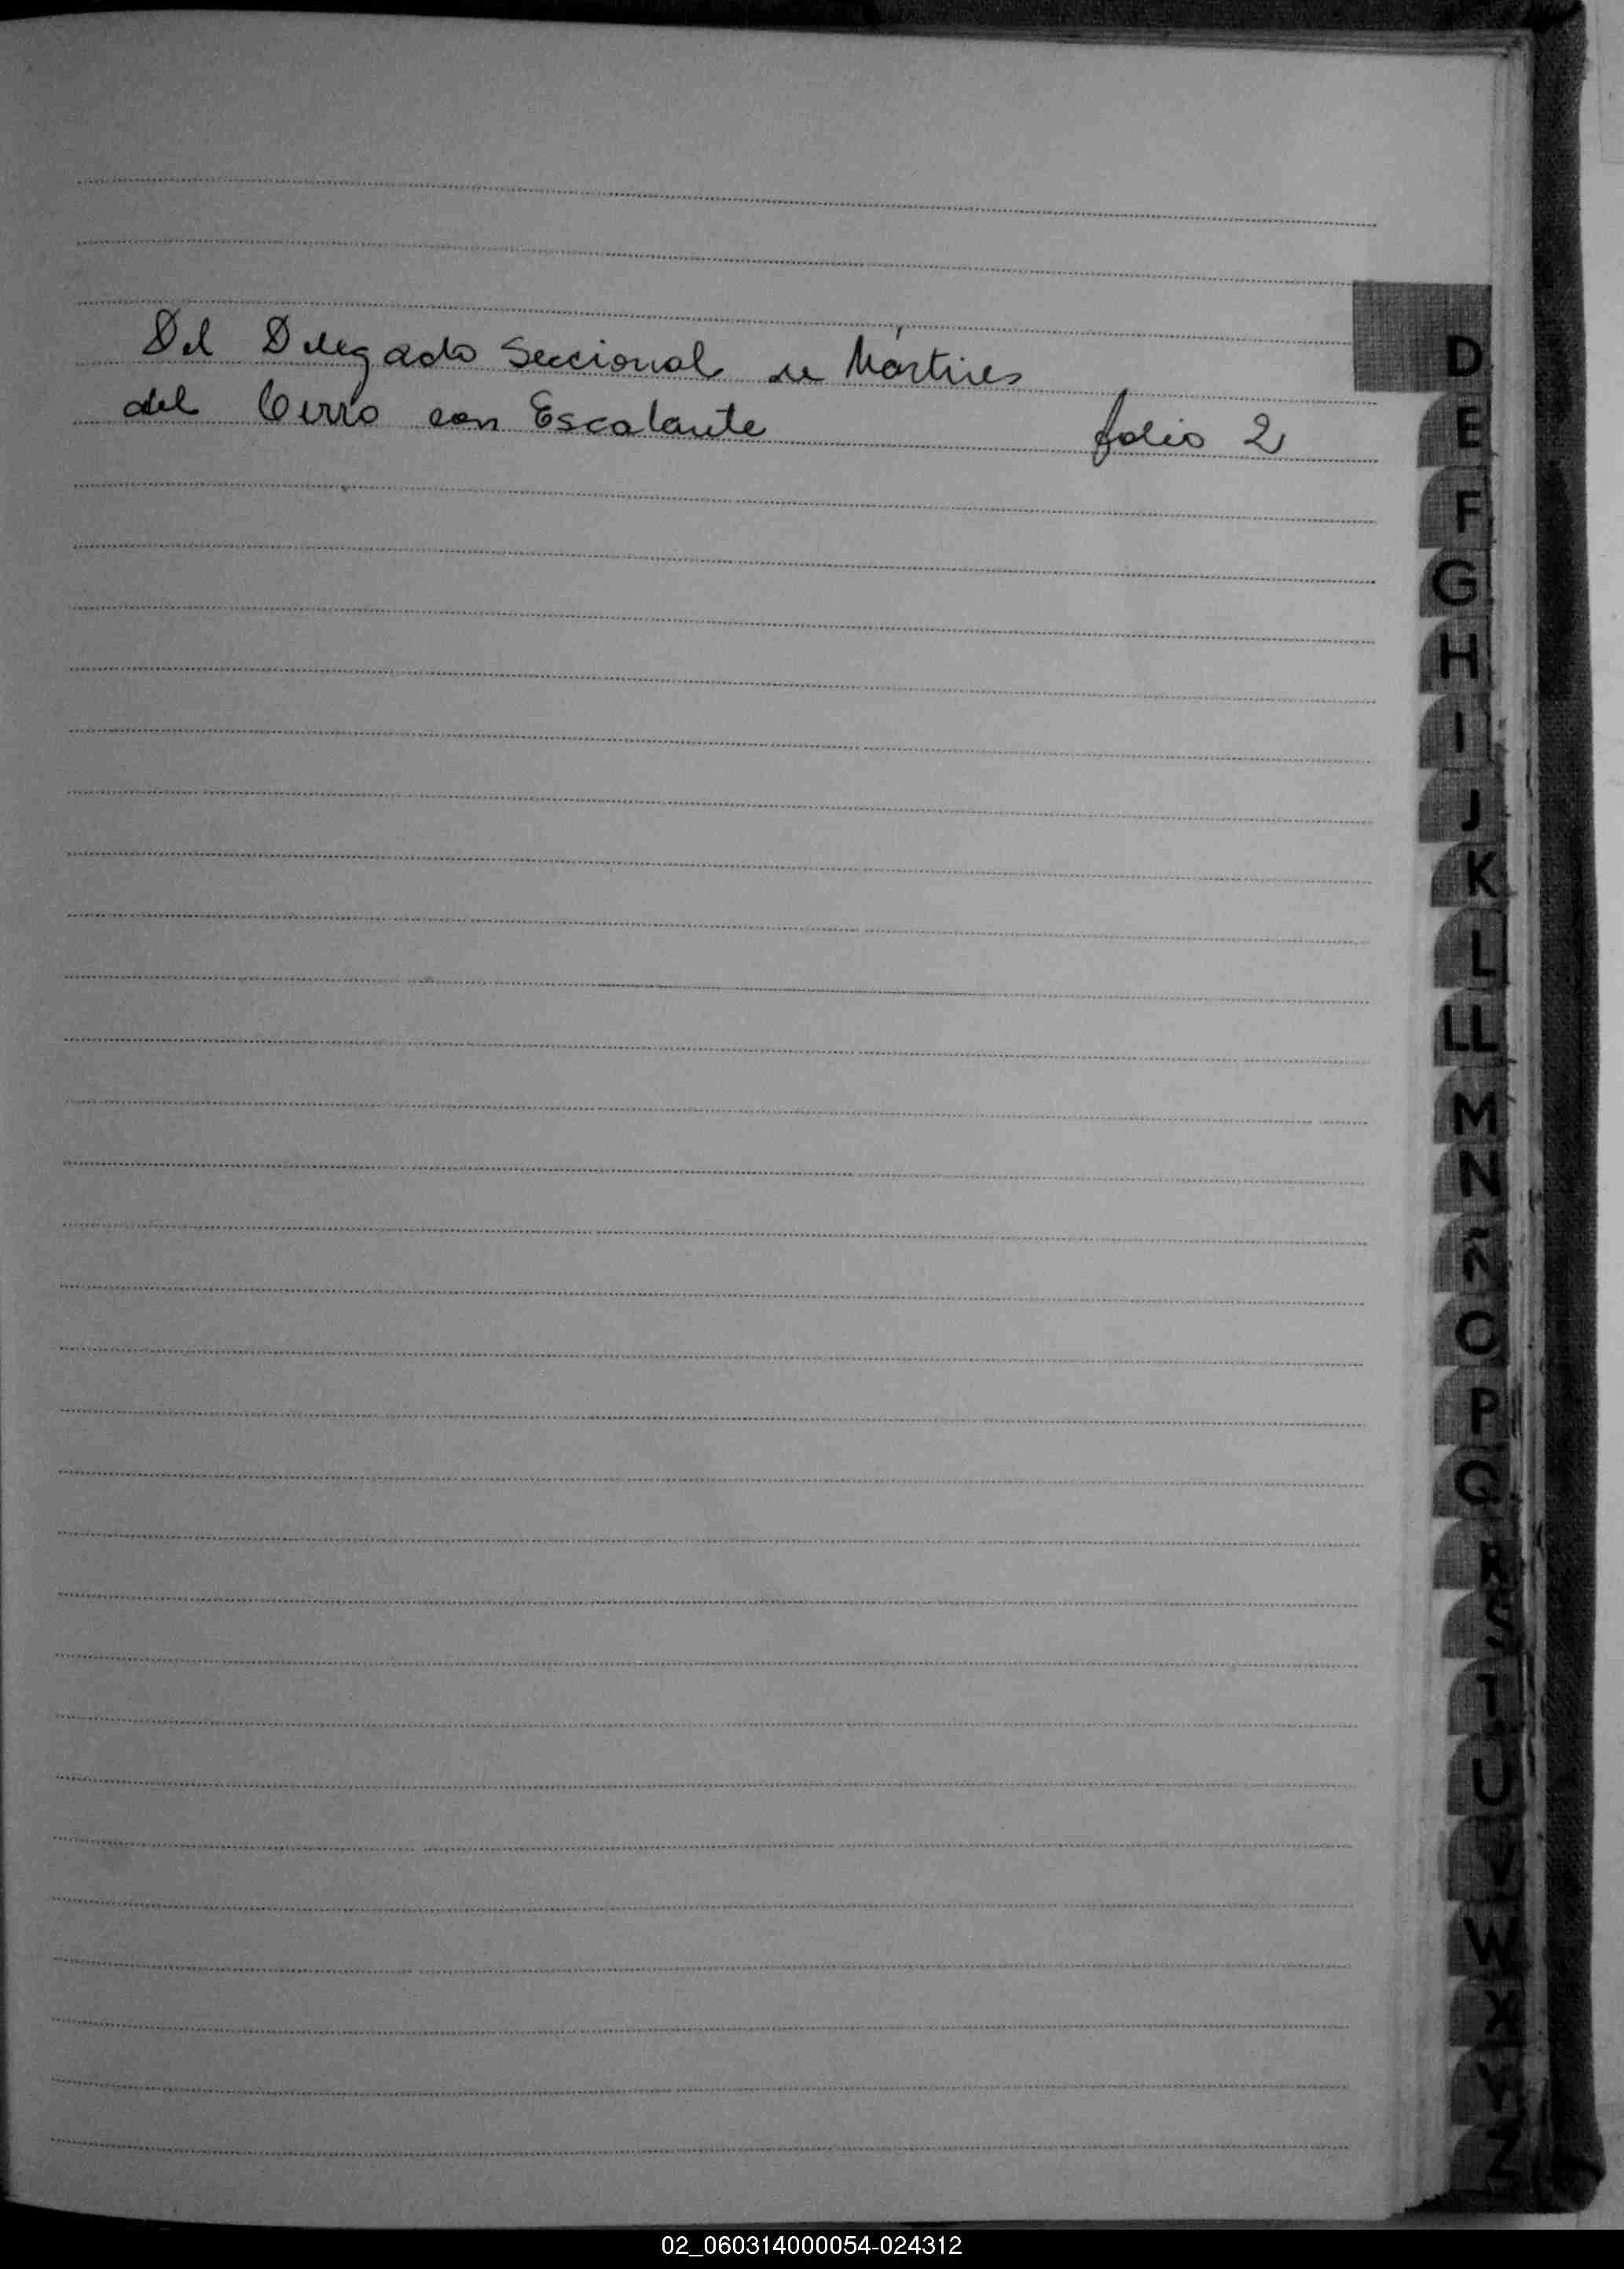 Del Delegado Seccional de Mártires
del Cerro con Escalante folio 2
D
E
F
G
H
I
J
K
L
LL
M
N
Ñ
O
P
Q
R
S
T
U
V
W
X
Y
Z
02_060314000054-024312